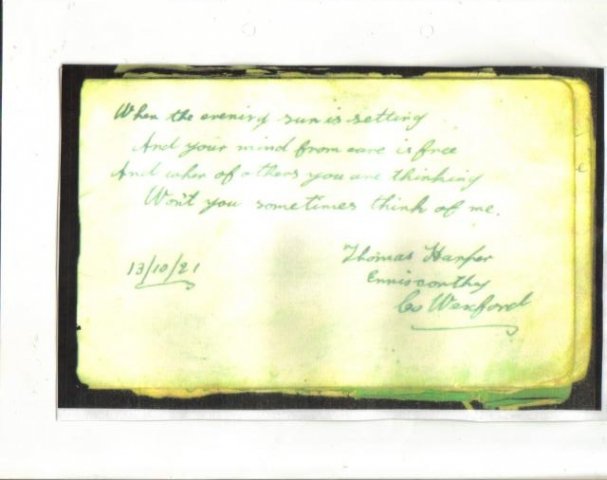 When the evening sun is setting
And your mind from care is free
And when of others you are thinking
Won't you sometimes think of me.
13/10/21
Thomas Harper
Enniscorthy
Co Wexford